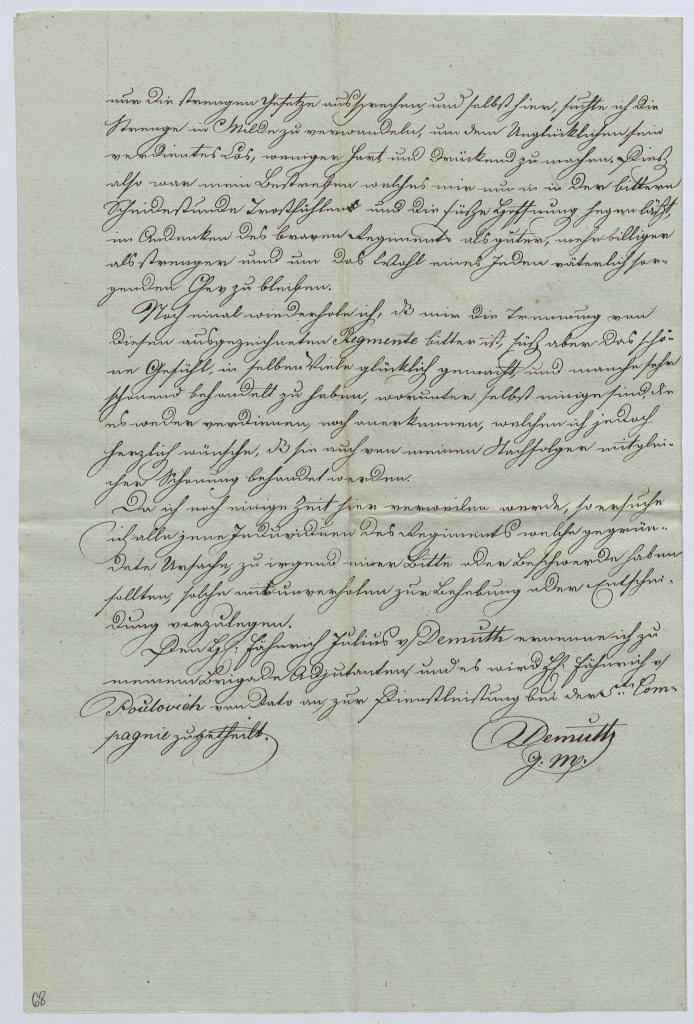 nur die strengen Gesetze aussprechen, und selbst hier, suchte ich die
Strenge in Milde zu verwandeln, um dem Unglücklichen sein
verdientes Los, weniger hart und drückend zu machen. Dies
also war mein Bestreben welches mir nun in der bittern
Scheidestunde Trost fühlen und die süße Hoffnung hegen läßt,
im Andenken des braven Regiments als guter, mehr billiger
als strenger und um das Wohl eines Jeden väterlich sor-
genden Chef zu bleiben.
Noch einmal wiederhole ich, dß mir die Trennung von
diesem ausgezeichneten Regimente bitter ist, süß aber das schö-
ne Gefühl, in selben Viele glücklich gemacht, und manche sehr
schonend behandelt zu haben, worunter selbst einige sind, die
es weder verdienen, noch anerkennen, welchen ich jedoch
herzlich wünsche, dß sie auch von meinen Nachfolger mit glei-
cher Schonung behandelt werden.
Da ich noch einige Zeit hier verweilen werde, so ersuche
ich alle jene Individuen des Regiments welche gegrün-
dete Ursache, zu irgend einer Bitte oder Beschwerde haben
sollten, solche mir unverholen zur Behebung oder Entschei-
dung vorzulegen.
Den H: Fähnrich Julius v/ Demuth ernenne ich zu
meinem Brigade Adjutanten, und es wird H: Fähnrich v/
Poulovich von Dato an, zur Dienstleistung bei der 5ten Com-
pagnie zugetheilt.
Demuth
G. M.
68